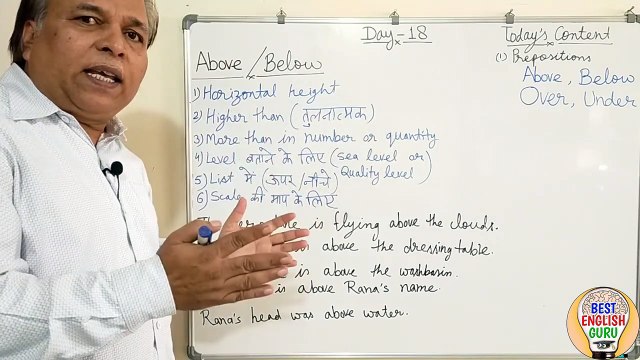 Day-18
Today's Content
(1) Prepositions
Above, Below
Over, Under
Above/Below
1) Horizontal height
2) Higher than (तुलनात्मक)
3) More than in number or quantity
4) Level बताने के लिए (sea level or
Quality level)
5) List में (ऊपर/नीचे)
6) Scale की माप के लिए
is flying above the clouds.
above the dressing table.
is above the washbasin.
is above Rana's name.
Rana's head was above water.
BEST
ENGLISH
GURU